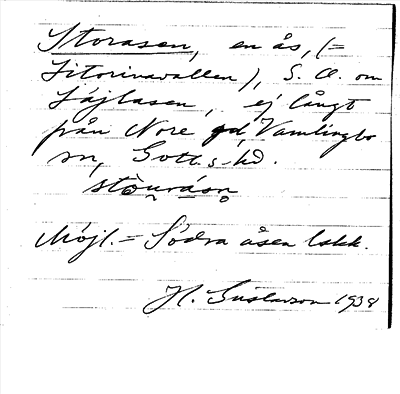 Storåsen, en ås, (=
Litorinavallen), S. O. om
Lájlasen, ej långt
från Nore gd, Vamlingbo
sn, Gotl. s. hd.
stòuråsn̥
Möjl. = Södra åsen lskk.
H. Gustavson 1938